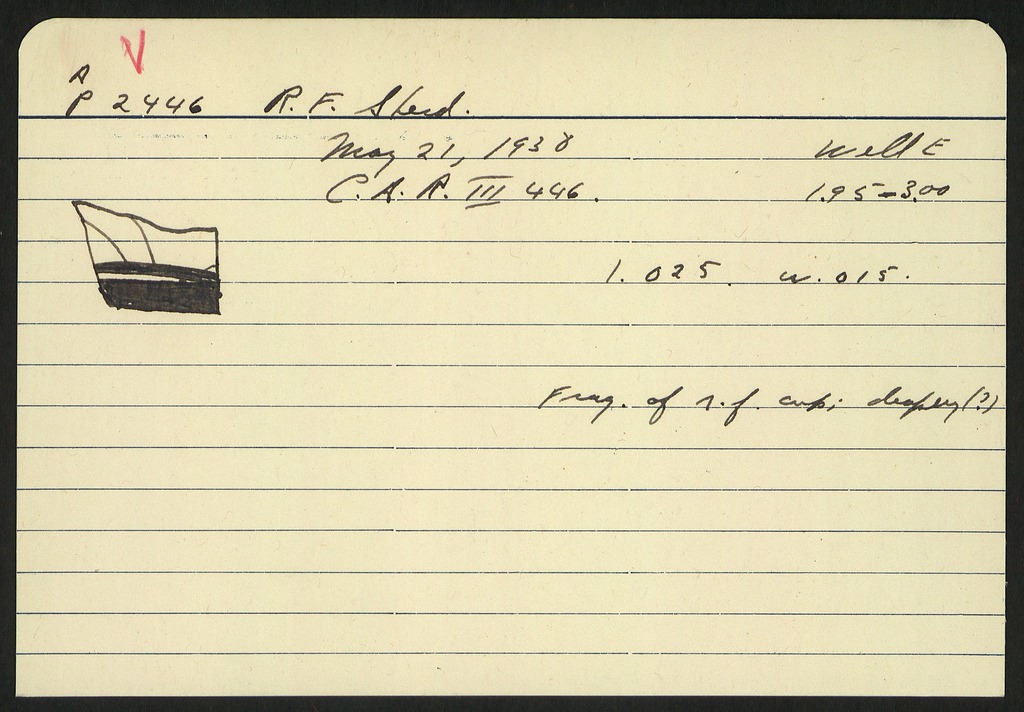 A
P 2446 R. F. Sherd.
May 21, 1938 Well E
C. A. P. III 446. 1.95-3.00
l. 025. w. 015.
Frag. of r.f. cup; drapery(?)